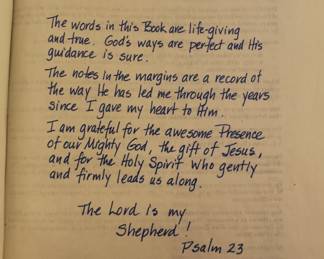 The words in this Book are life-giving
and true. God's ways are perfect and His
guidance is sure.
The notes in the margins are a record of
the way He has led me through the years
since I gave my heart to Him.
I am grateful for the awesome Presence
of our Mighty God, the gift of Jesus,
and for the Holy Spirit Who gently
and firmly leads us along.
The Lord is my
Shepherd!
Psalm 23